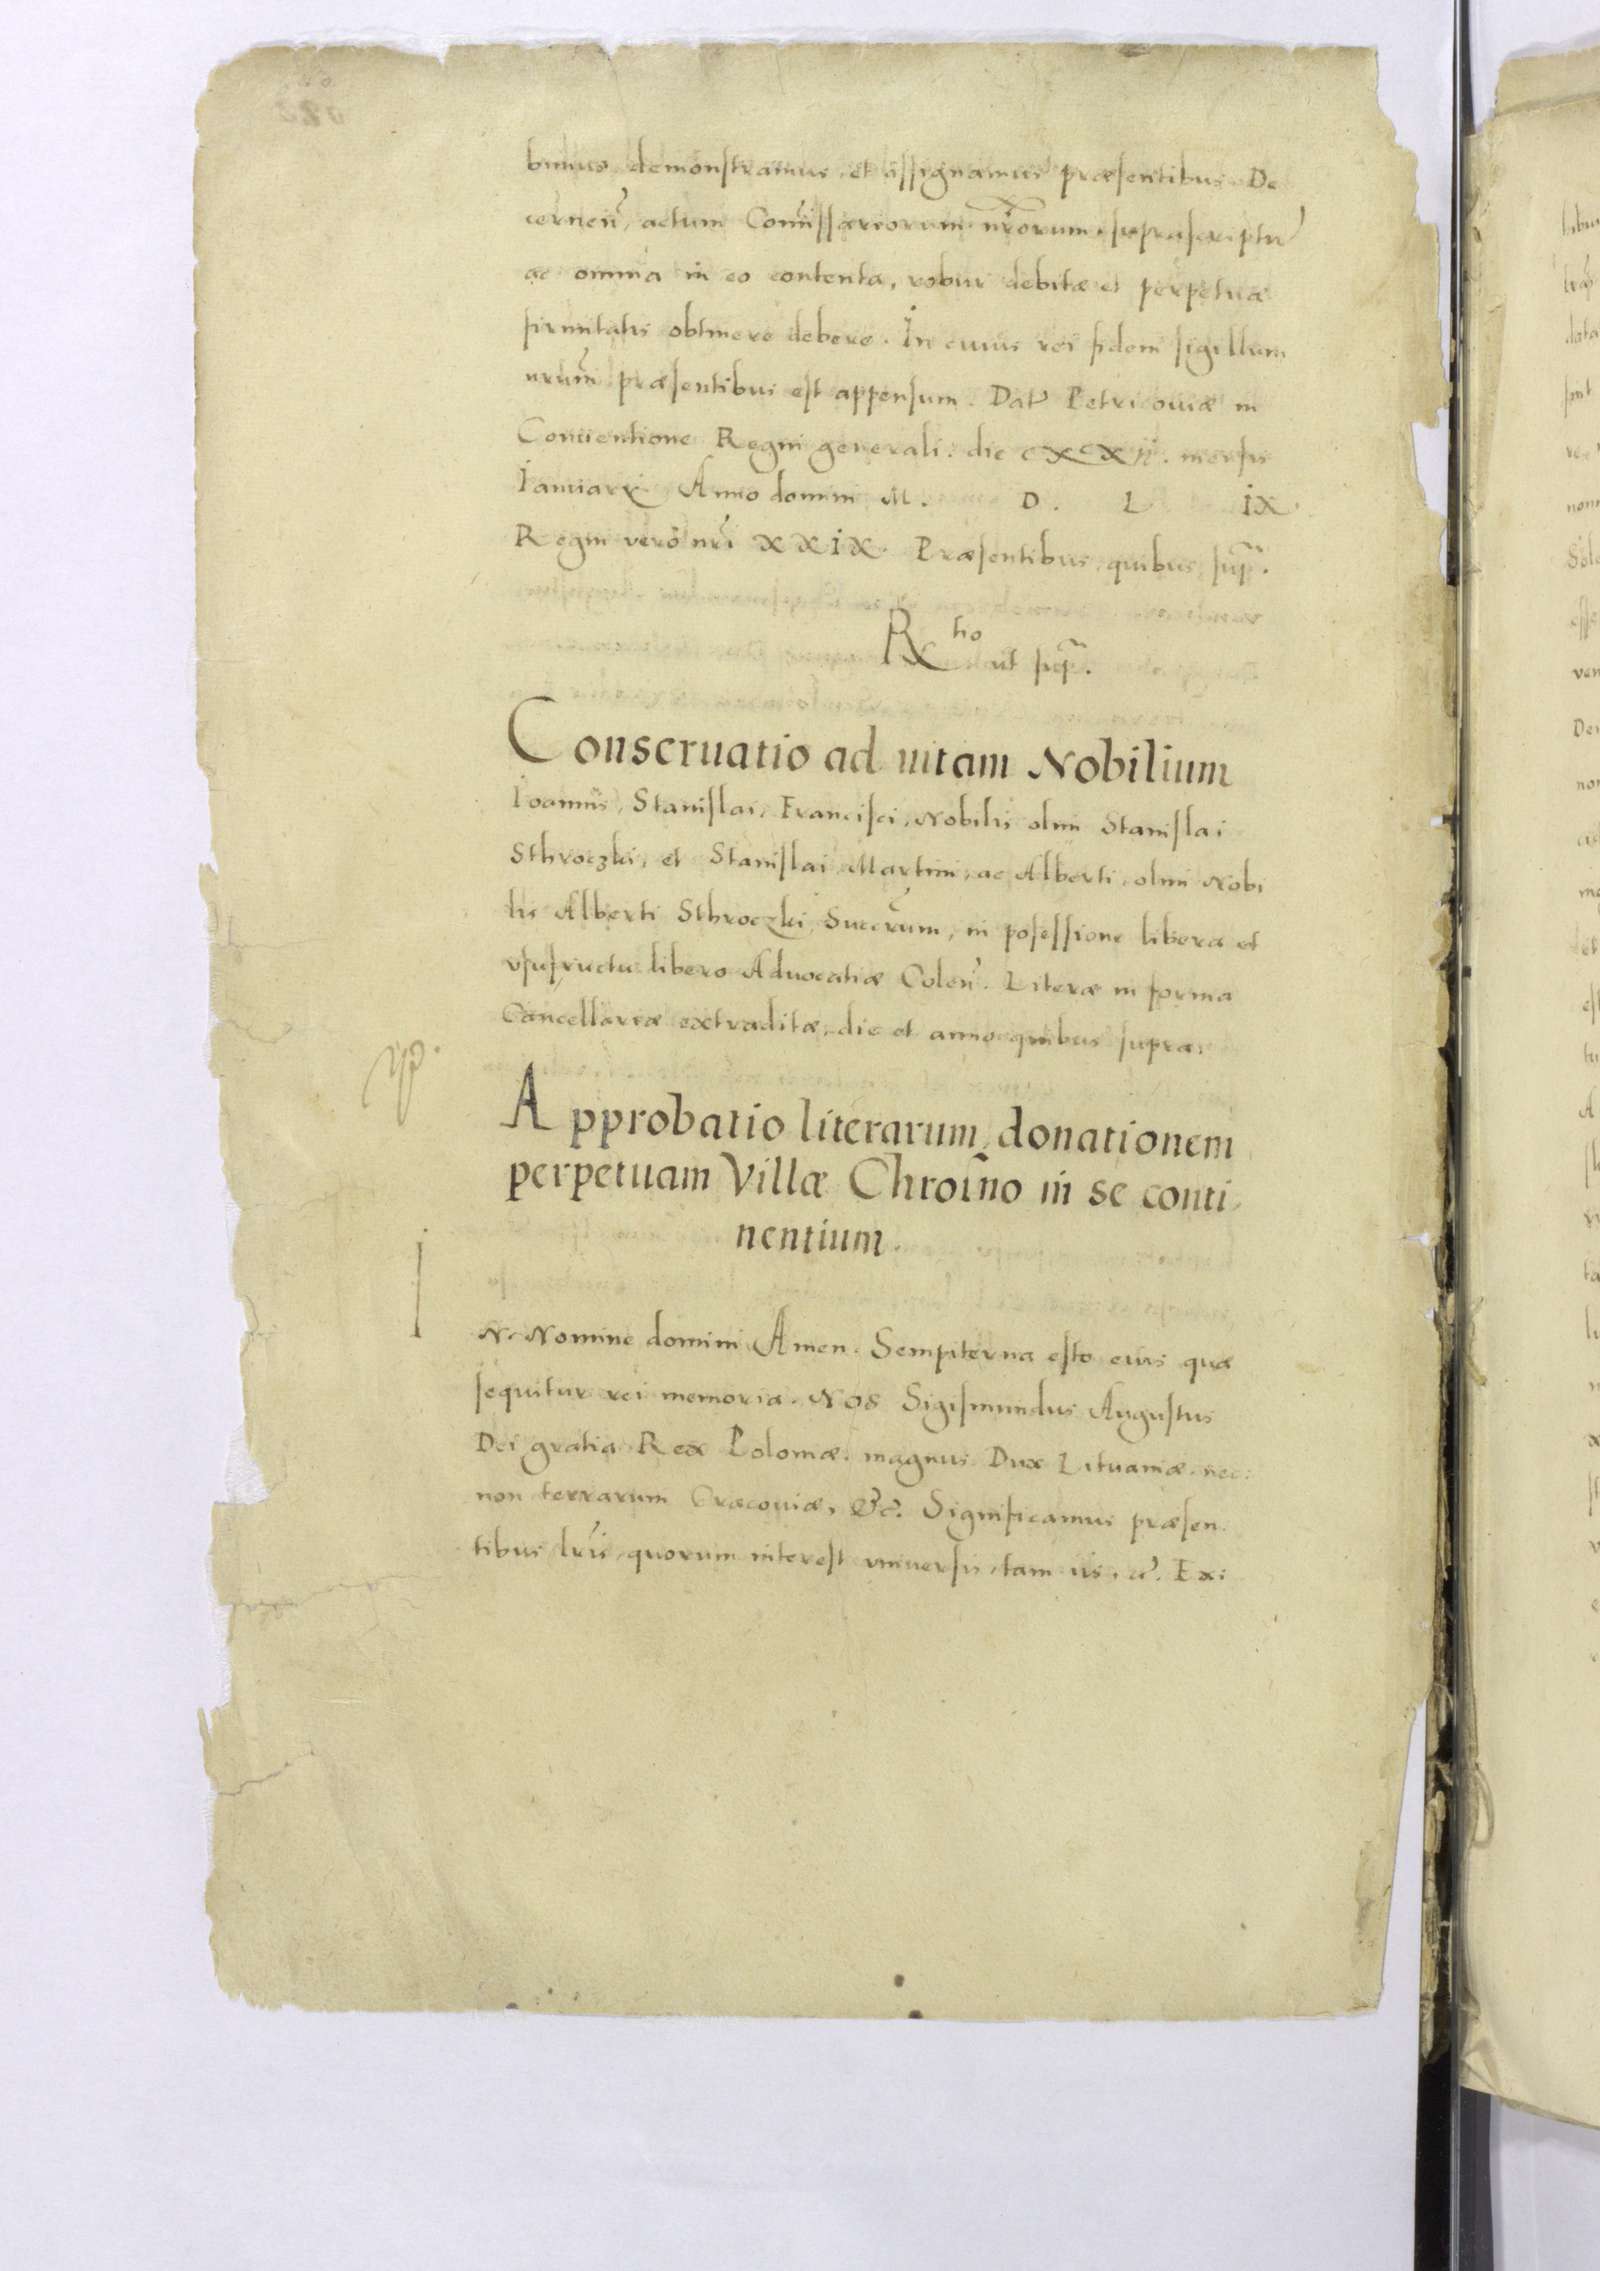 bimus demonstramus, et assignamus præsentibus. De
cernen̄, actum Com̄issariorum nr̄orum suprascriptū
ac omnia in eo contenta, robur debitæ et perpetuæ
firmitatis obtinere debere. In cuius rei fidem sigillum
nrūm præsentibus est appensum. Dat̄ Petricouiæ in
Conuentione Regni generali. die mensis
Ianuarÿ Anno domini M. D. L IX.
Regni vero nr̄i XXIX. Præsentibus, quibus sup̄.
Rtio ut sup̄.
Conseruatio ad uitam Nobilium
Ioannis, Stanislai, Francisci, Nobilis olim Stanislai
Sthroczki, et Stanislai Martini, ac Alberti, olim Nobi
lis Alberti Sthroczki Succr̄um, in posessione libera et
vsufructu libero Aduocatiæ Colen̄. Literæ in forma
Cancellariæ extraditæ, die et anno quibus supra.
Approbatio literarum, donationem
perpetuam Villæ Chroīno in se conti,
nentium.
I
N Nomine domini Amen. Sempiterna esto eius quæ
sequitur rei memoria. Nos Sigismundus Augustus
Dei gratia Rex Poloniæ. magnus Dux Lituaniæ. nec:
non terrarum Cracouiæ, &c. Significamus præsen
tibus lr̄is, quorum interest vniuersis, tam iis, c̄. Ex: